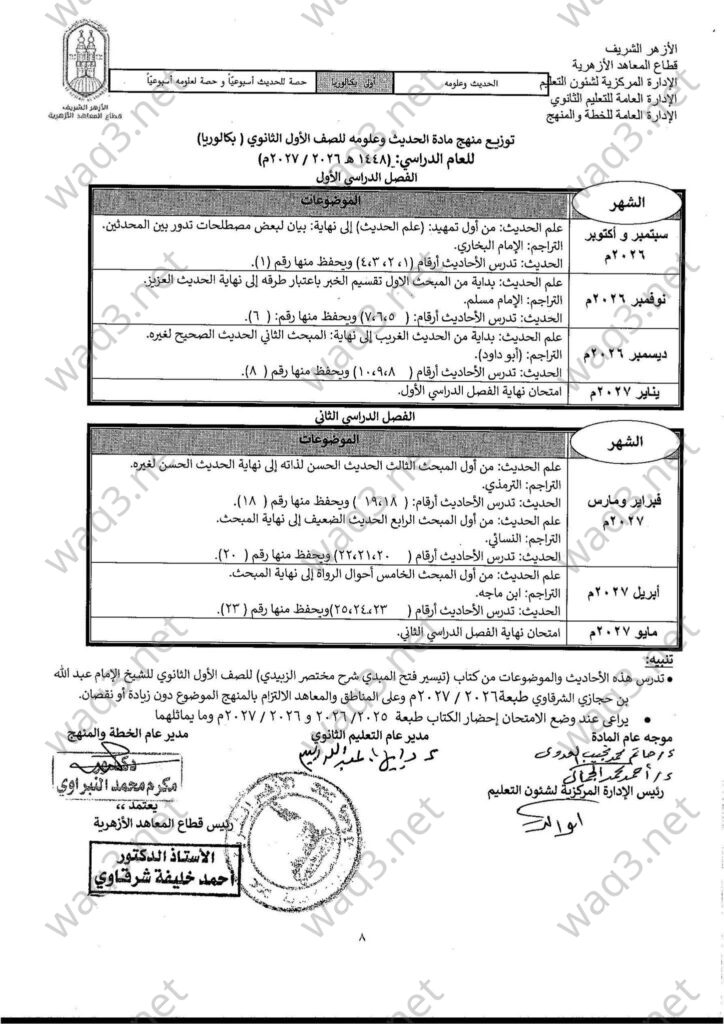 الأزهر الشريف
قطاع المعاهد الأزهرية
الإدارة المركزية لشئون التعليم
الإدارة العامة للتعليم الثانوي
الإدارة العامة للخطة والمنهج
الحديث وعلومه
أولى بكالوريا
حصة للحديث أسبوعيًا و حصة لعلومه أسبوعيًا
الأزهر الشريف
قطاع المعاهد الأزهرية
توزيع منهج مادة الحديث وعلومه للصف الأول الثانوي ( بكالوريا)
للعام الدراسي: (١٤٤٨ هـ ٢٠٢٦ / ٢٠٢٧م)
الفصل الدراسي الأول
الشهر
الموضوعات
سبتمبر و أكتوبر ٢٠٢٦م
علم الحديث: من أول تمهيد: (علم الحديث) إلى نهاية: بيان لبعض مصطلحات تدور بين المحدثين.
التراجم: الإمام البخاري.
الحديث: تدرس الأحاديث أرقام (١، ٢، ٤،٣) ويحفظ منها رقم (١).
نوفمبر ٢٠٢٦م
علم الحديث: بداية من المبحث الاول تقسيم الخبر باعتبار طرقه إلى نهاية الحديث العزيز.
التراجم: الإمام مسلم.
الحديث: تدرس الأحاديث أرقام: ( ٧،٦،٥) ويحفظ منها رقم: ( ٦).
ديسمبر ٢٠٢٦م
علم الحديث: بداية من الحديث الغريب إلى نهاية: المبحث الثاني الحديث الصحيح لغيره.
التراجم: (أبو داود).
الحديث: تدرس الأحاديث أرقام ( ١٠،٩،٨) ويحفظ منها رقم ( ٨).
يناير ٢٠٢٧م
امتحان نهاية الفصل الدراسي الأول.
الفصل الدراسي الثاني
الشهر
الموضوعات
فبراير ومارس ٢٠٢٧م
علم الحديث: من أول المبحث الثالث الحديث الحسن لذاته إلى نهاية الحديث الحسن لغيره.
التراجم: الترمذي.
الحديث: تدرس الأحاديث أرقام: ( ١٩،١٨ ) ويحفظ منها رقم ( ١٨).
علم الحديث: من أول المبحث الرابع الحديث الضعيف إلى نهاية المبحث.
التراجم: النسائي.
الحديث: تدرس الأحاديث أرقام ( ٢٢،٢١،٢٠) ويحفظ منها رقم ( ٢٠).
أبريل ٢٠٢٧م
علم الحديث: من أول المبحث الخامس أحوال الرواة إلى نهاية المبحث.
التراجم: ابن ماجه.
الحديث: تدرس الأحاديث أرقام ( ٢٥،٢٤،٢٣)ويحفظ منها رقم ( ٢٣).
مايو ٢٠٢٧م
امتحان نهاية الفصل الدراسي الثاني.
تنبيه:
• تدرس هذه الأحاديث والموضوعات من كتاب (تيسير فتح المبدي شرح مختصر الزبيدي) للصف الأول الثانوي للشيخ الإمام عبد الله
بن حجازي الشرقاوي طبعة٢٠٢٦ / ٢٠٢٧م وعلى المناطق والمعاهد الالتزام بالمنهج الموضوع دون زيادة أو نقصان.
• يراعى عند وضع الامتحان إحضار الكتاب طبعة ٢٠٢٥/ ٢٠٢٦ و ٢٠٢٦ / ٢٠٢٧م وما يماثلهما
موجه عام المادة
مدير عام التعليم الثانوي
مدير عام الخطة والمنهج
دكتور
مكرم محمد النبراوي
رئيس الإدارة المركزية لشئون التعليم
يعتمد ،،
رئيس قطاع المعاهد الأزهرية
الأستاذ الدكتور
أحمد خليفة شرقاوي
٨
waq3.net